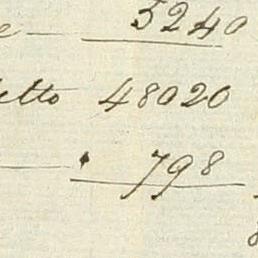 e — 5240
etto 48020
— 798